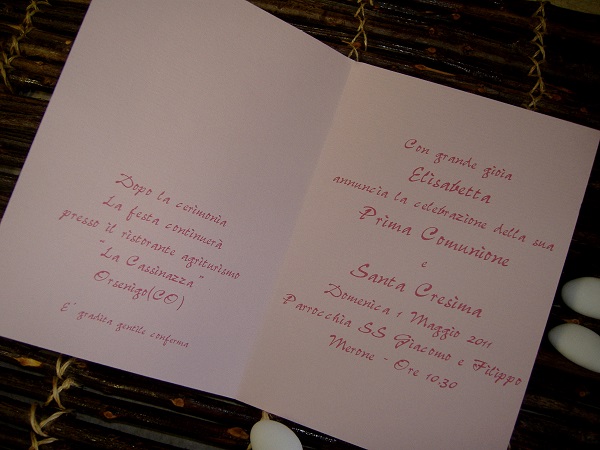 Dopo la cerimonia
La festa continuerà
presso il ristorante agriturismo
"La Cassinazza"
Orsenigo(CO)
E' gradita gentile conferma
Con grande gioia
Elisabetta
annuncia la celebrazione della sua
Prima Comunione
e
Santa Cresima
Domenica 1 Maggio 2011
Parrocchia SS Giacomo e Filippo
Merone - Ore 10.30